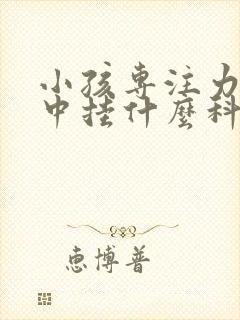 小孩专注力
中挂什麼科
惠博普